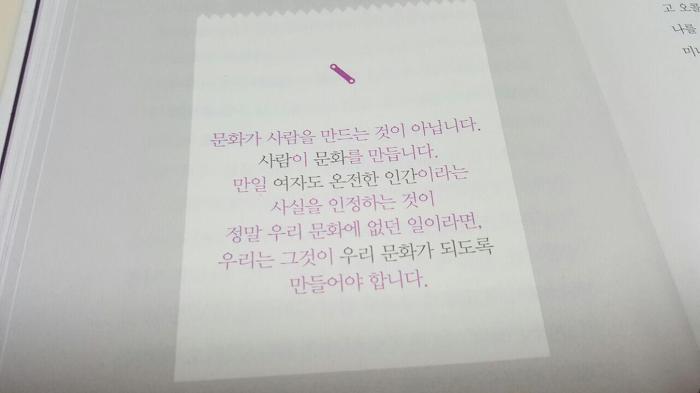 문화가 사람을 만드는 것이 아닙니다.
사람이 문화를 만듭니다.
만일 여자도 온전한 인간이라는
사실을 인정하는 것이
정말 우리 문화에 없던 일이라면,
우리는 그것이 우리 문화가 되도록
만들어야 합니다.
고 오콜
나를